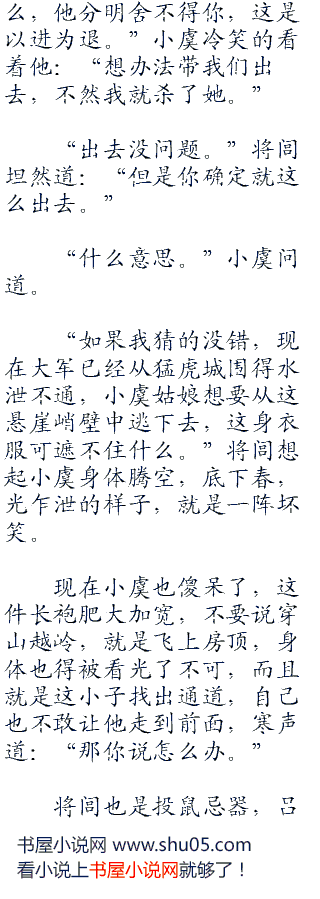 么，他分明舍不得你，这是
以进为退。”小虞冷笑的看
着他：“想办法带我们出
去，不然我就杀了她。”
“出去没问题。”将闾
坦然道：“但是你确定就这
么出去。”
“什么意思。”小虞问
道。
“如果我猜的没错，现
在大军已经从猛虎城围得水
泄不通，小虞姑娘想要从这
悬崖峭壁中逃下去，这身衣
服可遮不住什么。”将闾想
起小虞身体腾空，底下春，
光乍泄的样子，就是一阵坏
笑。
现在小虞也傻呆了，这
件长袍肥大加宽，不要说穿
山越岭，就是飞上房顶，身
体也得被看光了不可，而且
就是这小子找出通道，自己
也不敢让他走到前面，寒声
道：“那你说怎么办。”
将闾也是投鼠忌器，吕
书屋小说网 www.shu05.com
看小说上书屋小说网就够了！